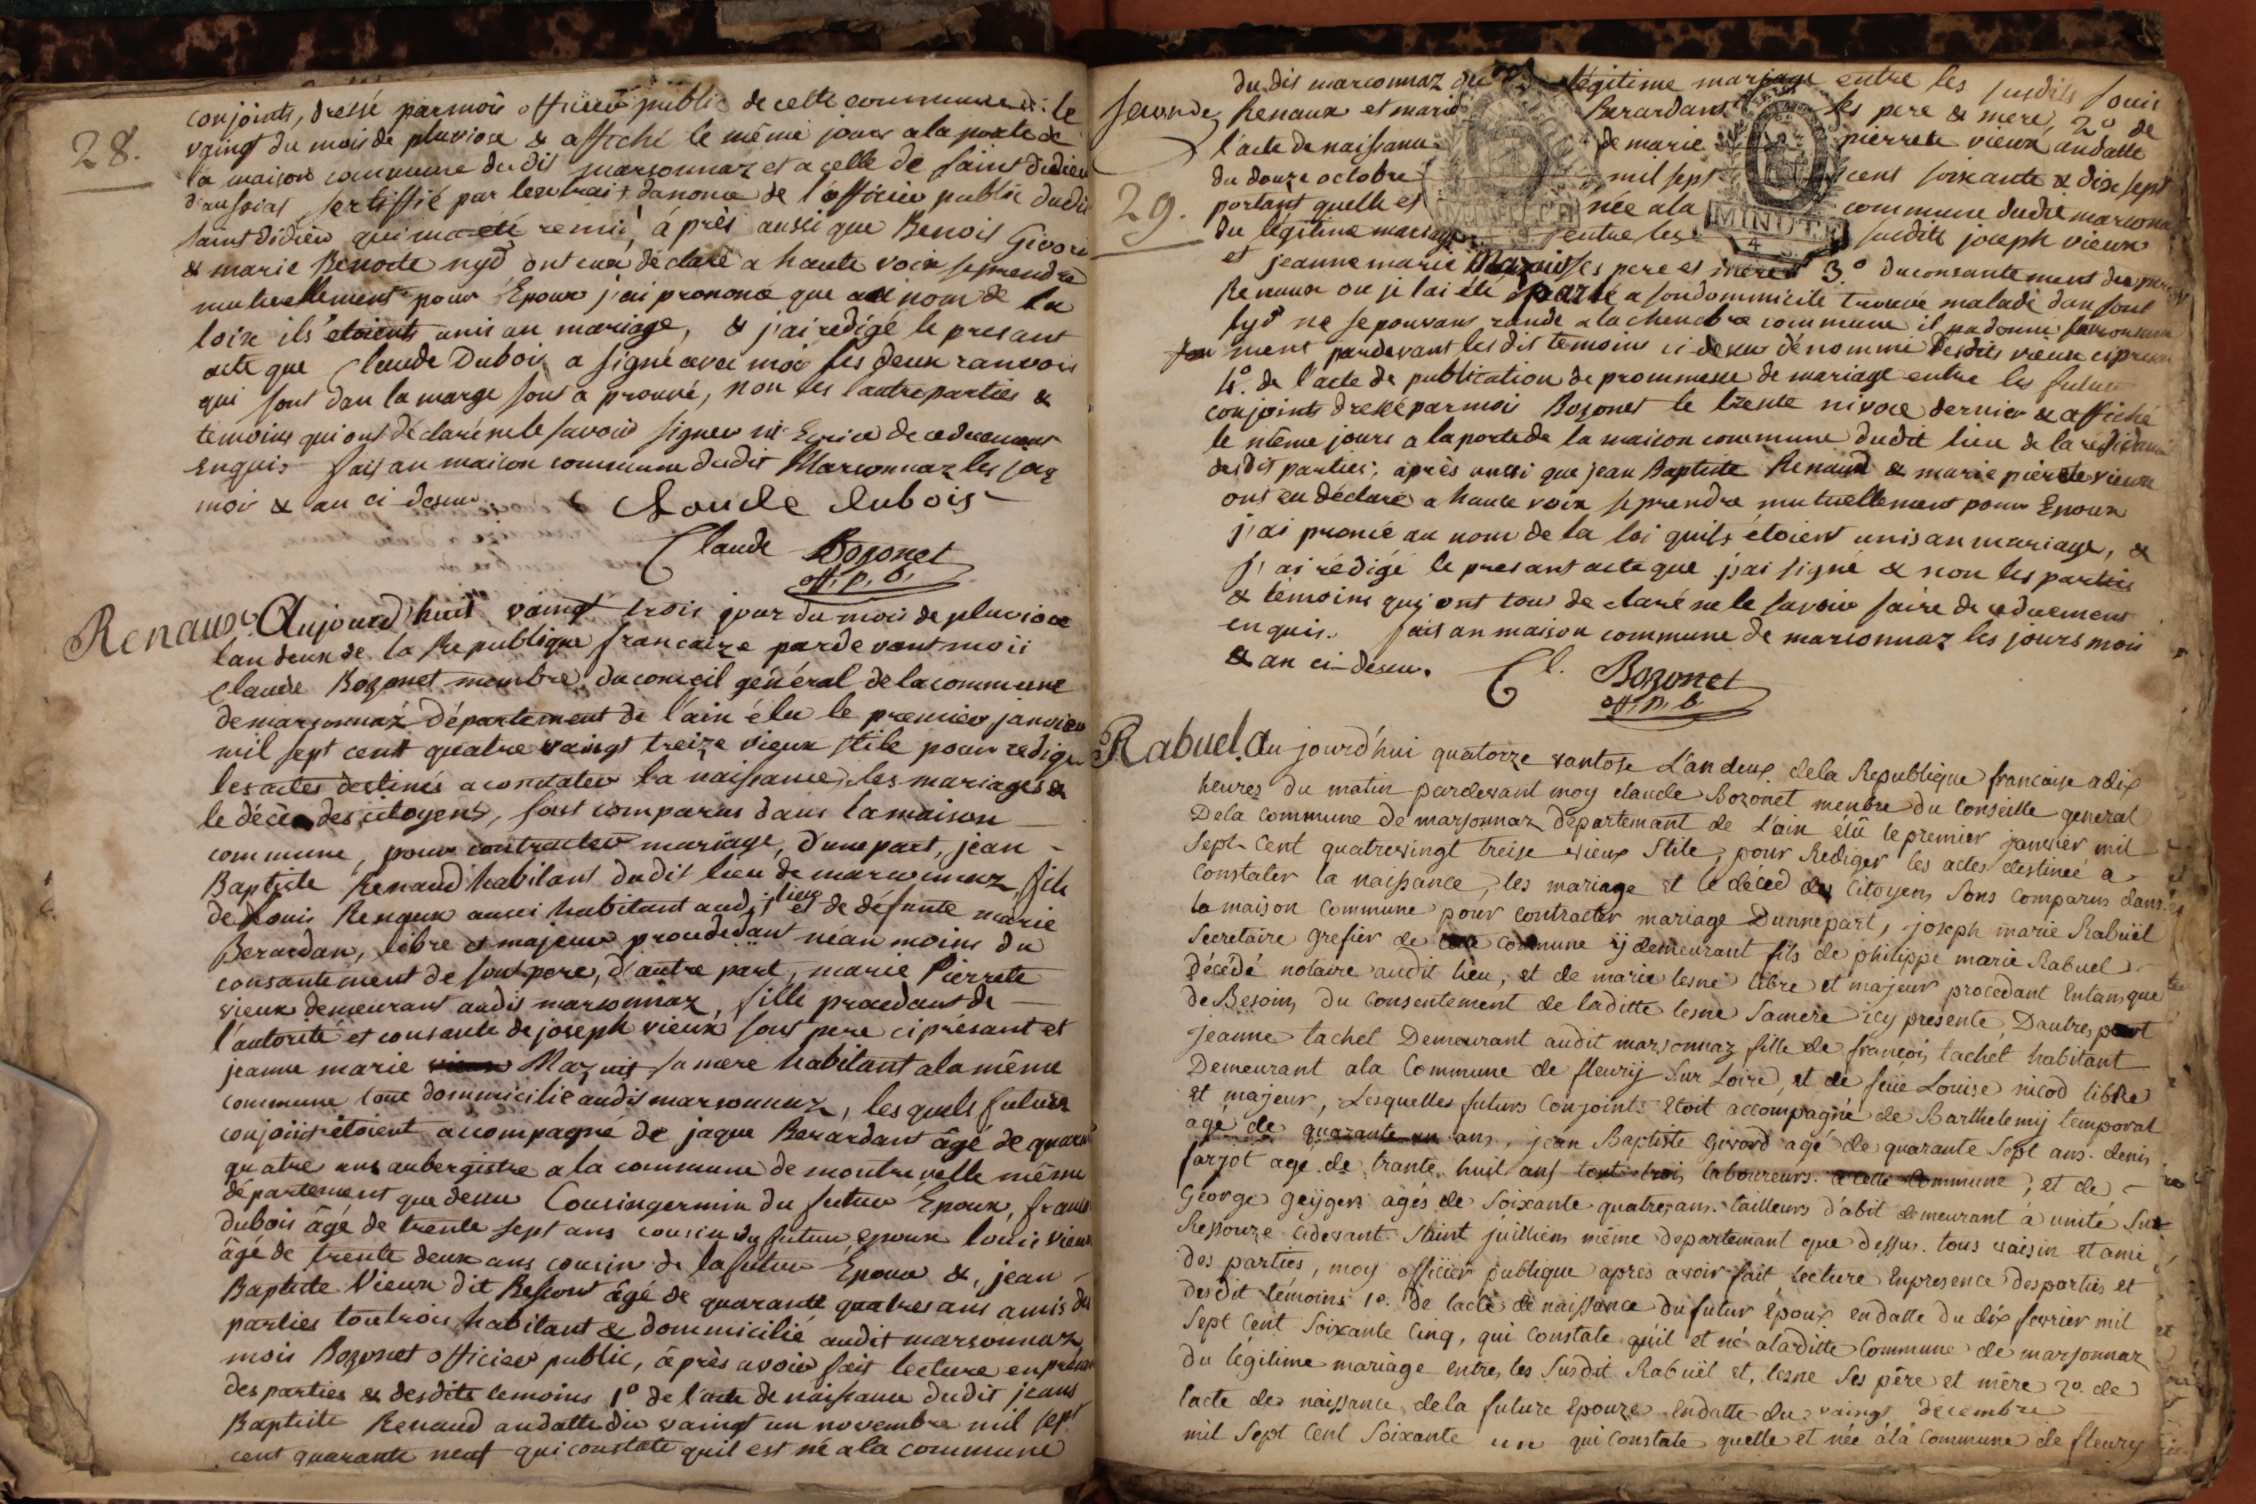 28.
conjoints, dressé par moi officier public de cette commune le
vaingt du mois de pluviose & affiché le même jour a la porte de
la maison commune du dit marsonnaz et a celle de saint didier
d'aussiat sertiffié par lextrait danonce de l'officier public dudit
saint didier qui ma été remi, après aussi que Benois Givord
& marie Benoite nyd ont eux déclaré a haute voix se prendre
mutuellement pour Epoux j'ai prononcé que au nom de la
loix ils étoients unis an mariage, & j'ai redigé le presant
acte que Claude Dubois a signé avec moi les deux ranvois
qui sont dan la marge sont a prouvé, non les lautre parties &
temoins qui ont déclaré ne le savoir signer ni Ecrire de ce duement
enquis fait an maison commune dudit Marsonnaz les jour
moi & an ci desus.
Claude dubois
Claude Bozonet
off. p. b.
Renaux. Aujourd huit vaingt trois jour du mois de pluviose
lan deux de la Republique francaize pardevant moi
Claude Bozonet membre du conseil général de la commune
de marsonnaz département de l'ain élu le premier janvier
mil sept cent quatre vaingt treize vieux stile pour redigé
les actes destinés a constater la naissance, les mariages &
le décès des citoyens, sont comparus dans la maison
commune, pour contracter mariage, d'une part, jean
Baptiste Renaud habitant dudit lieu de marsonnaz, fils
de Louis Renaux aussi habitant audit lieu et de défunte marie
Berardan, libre et majeur procedant néan moins du
consantement de sont pere, d'autre part, marie Pierrete
vieux demeurant audit marsonnaz, fille procedant de
l'autorité et consante de joseph vieux sont pere ci présant et
jeanne marie Mazuit sa mere habitant a la même
commune tout dommicilié audit marsonnaz, les quels futurs
conjoint étoient accompagné de jaque Berardant âgé de quarante
quatre ans aubergistre a la commune de montrevelle même
département que desu Cousin germin du futur Epoux, francois
dubois âgé de trente sept ans cousin du futur epoux louis vieux
âgé de trente deux ans cousin de la futur Epoux &, jean
Baptiste Vieux dit Besson âgé de quarante quatres ans amis des
parties toutrois habitant & dommicilié audit marsonnaz
mois Bozonet officier public, après avoir fait lecture en présance
des parties & desdits temoins 1º de l'acte de naissance dudit jeant
Baptiste Renaud an datte du vaingt un novembre mil sept
cent quarante neuf qui constate quil est né a la commune
29.
du dit marsonnaz du légitime mariage entre les susdits Louis
Renaux et marie Berardant ses pere & mere, 2º de
l'acte de naissance de marie pierrete vieux andatte
du douze octobre mil sept cent soixante & dixe sept
portant quelle est née a la commune dudit marsonnaz
du légitime mariage entre les susdits joseph vieux
MINUTE
4
et jeanne marie Mazuit ses pere et mere 3º du consantement du pere
Renaux ou je lai été a son dommicile trouvé malade dan sont
lyd ne se pouvans rande a la chambre commune il ma donné son consante
ment pardevant les dit témoins ci desu dénommé desdits vieux ci presen
4º. de l'acte de publication de prommesse de mariage entre les futurs
conjoints dressé par mois Bozonet le trente nivose dernier & affiché
le même jours a la porte de la maison commune dudit lieu de la residance
desdit parties; après aussi que jean Baptiste Renaud & marie pierete vieux
ont eu déclaré a haute voix se prendre mutuellement pour Epoux
j'ai pronncé au nom de la loi quils étoient unis an mariage, &
j'ai rédigé le presant acte que j'ai signé & non les parties
& témoins qui ont tous declaré ne le savoir faire de ce duement
enquis. fait an maison commune de marsonnaz les jours mois
& an ci-desu.
Cl. Bozonet
off. p. b.
Rabuel. Au jourd'hui quatorze vantose L'an deux de la Republique francaise a dix
heures du matin pardevant moy claude Bozonet menbre du Conseille general
De la commune de marsonnaz departemant de L'ain élû le premier janvier mil
Sept Cent quatrevingt treise vieux Stile, pour Rediger les actes destinée a
Constater la naissance, les mariage et le déced des Citoyens Sons comparus dans
la maison Commune pour contracter mariage Dunnepart, joseph marie Rabuel
Secretaire grefier de commune ij demeurant fils de philippe marie Rabuel
Décédé notaire audit lieu, et de marie lesne libre et majeur procedant Entanque
de Besoins du Consentement de laditte lesne Samère icy presente, Dautres part
jeanne tachet Demeurant audit marsonnaz fille de françois tachet habitant
Demeurant ala Commune de fleurij Sur Loire, et de feüe Louise nicod libre
et majeur, Lesquelles futurs Conjoints Etoit accompagné de Barthelemij temporal
agé de quarante un ans, jean Baptiste Givord agé de quarante Sept ans. denis
farjot agé de trante huit ans tout trois laboureurs. a cette Commune, et de
George geijger âgés de Soixante quatres ans. tailleurs d'abit demeurant a unité Sur
Ressouze cidevant Saint juilliens même departemant que dessus. tous vaisin et ami
des parties, moy officier publique après avoir fait lecture Enpresence desparties et
desdit témoins 1º. De lacte de naissance du futur époux en datte du dix fevrier mil
Sept Cent Soixante Cinq, qui Constate qu'il et né aladitte Commune de marsonnaz
du légitime mariage entre les Susdit Rabuël et, lesne Ses père et mère 2º. de
lacte de naissance de la future Epouze Endatte du vaingt decembre
mil Sept Cent Soixante un qui Constate quelle et née àlà Commune de fleury